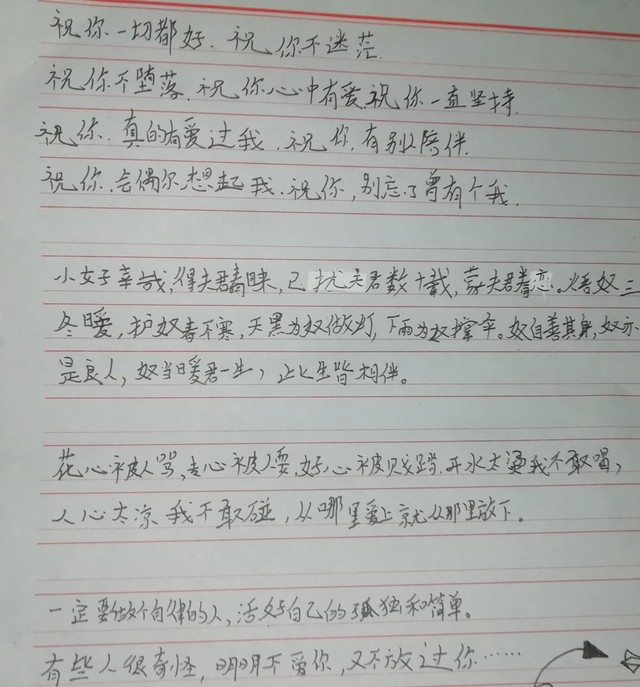 祝你一切都好.祝你不迷茫.
祝你不堕落.祝你心中有爱.祝你一直坚持.
祝你.真的有爱过我.祝你,有别人陪伴.
祝你.会偶尔想起我.祝你,别忘了曾有个我.
小女子幸哉,得夫君青睐,已扰夫君数十载,蒙夫君眷恋。焐奴三
冬暖,护奴春不寒,天黑为奴做灯,下雨为奴撑伞。奴自善其身,奴亦
是良人,奴当暖君一生,此生皆相伴。
花心被人骂,专心被人耍,好心被贱踏.开水太烫我不敢喝,
人心太凉我不敢碰,从哪里爱上就从那里放下。
一定要做个自律的人,活好自己的孤独和简单。
有些人很奇怪,明明不爱你,又不放过你……